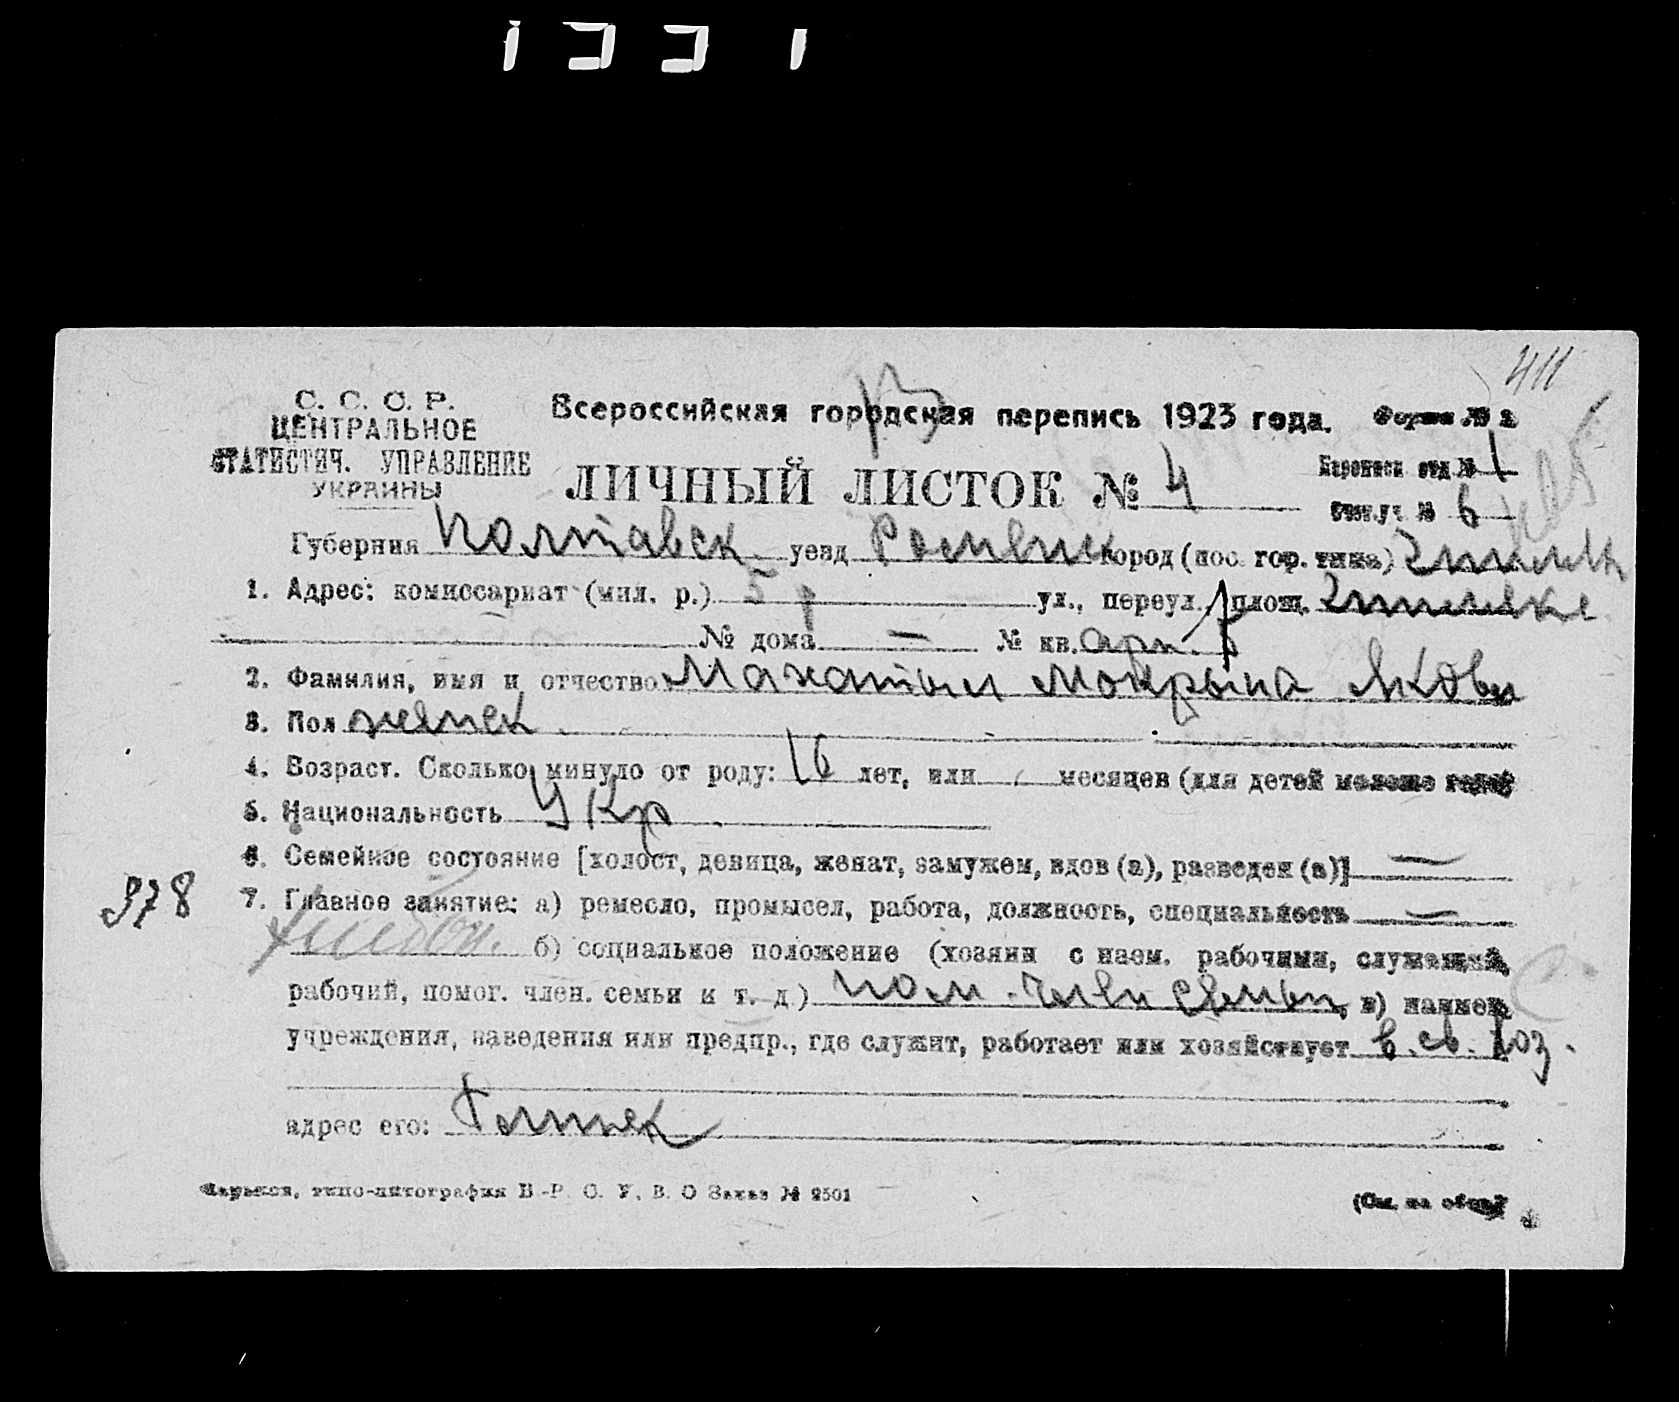 411
С. С. С. Р.
ЦЕНТРАЛЬНОЕ
СТАТИСТИЧ. УПРАВЛЕНИЕ
УКРАИНЫ
Всероссийская городская перепись 1923 года. Форма № 2
ЛИЧНЫЙ ЛИСТОК № 4
Переписн отд № 1
Счетн.уч № 6
Губерния Полтавск уезд Роменск город (пос. гор. типа)
1. Адрес: комиссариат (мил. р.) 5 р ул., переул., площ.
№ дома — № кв.
2. Фамилия, имя и отчество Мокрына Яковл
3. Пол женск
4. Возраст. Сколько минуло от роду: 16 лет, или месяцев (для детей моложе года)
5. Национальность Укр
6. Семейное состояние [холост, девица, женат, замужем, вдов (а), разведен (а)] —
978
7. Главное занятие: а) ремесло, промысел, работа, должность, специальность —
б) социальное положение (хозяин с наем. рабочими, служащий,
рабочий, помог. член. семьи и т. д.) пом. член семьи, в) наимен.
учреждения, заведения или предпр., где служит, работает или хозяйствует в. св. хоз.
адрес его:
Харьков, типо-литография В.-Р. С. У. В. О Заказ № 2501
(См. на обор.)